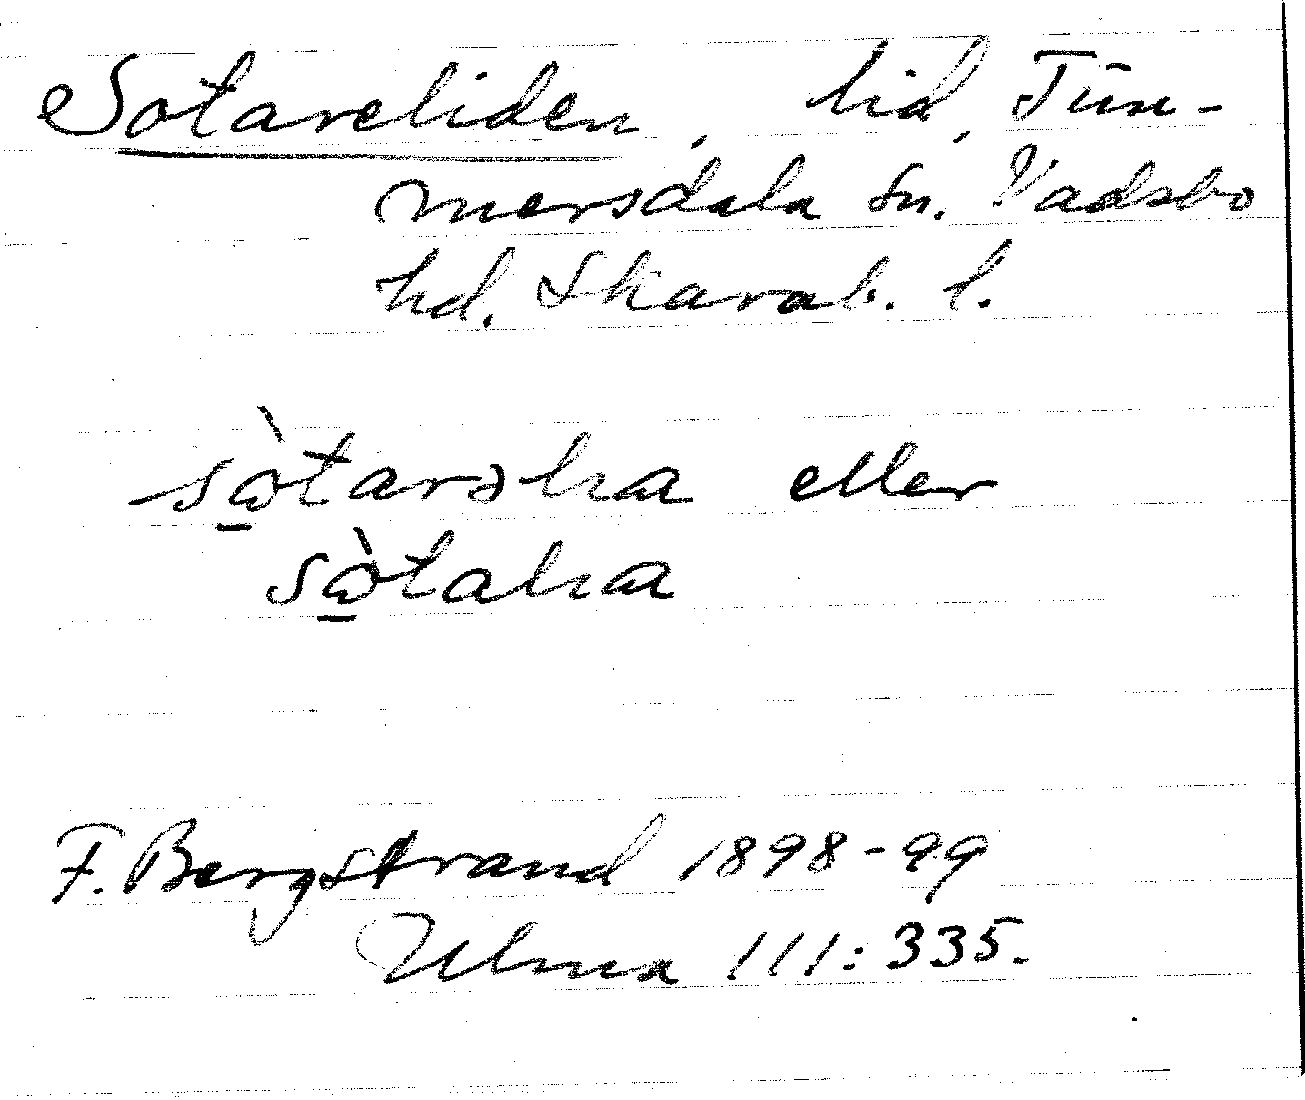 Sotareliden, lid, Tim-
mersdala sn. Vadsbo
hd. Skarab. l.
sὼ̱tarəlia eller
sὼ̱talia
F. Bergstrand 1898-99
Ulma 111:335.